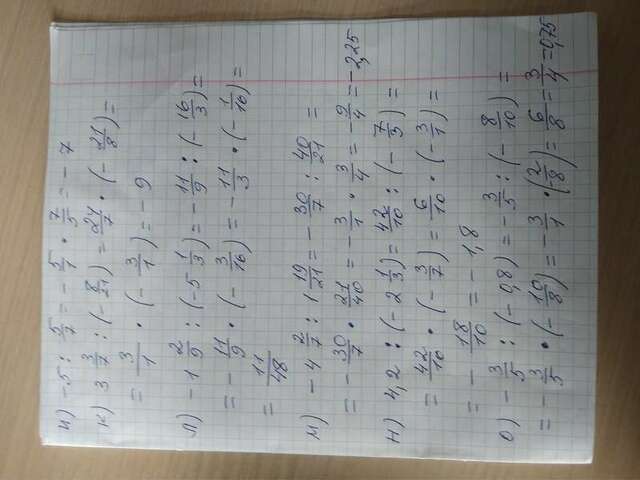 и) -5 : 5/7 = - 5/1 · 7/5 = - 7
к) 3 3/7 : (- 8/21) = 24/7 · (- 21/8) =
= 3/1 · (- 3/1) = - 9
л) -1 2/9 : (-5 1/3) = - 11/9 : (- 16/3) =
= - 11/9 · (- 3/16) = - 11/3 · (- 1/16) =
= 11/48
м) - 4 2/7 : 1 19/21 = - 30/7 : 40/21 =
= - 30/7 · 21/40 = - 3/1 · 3/4 = - 9/4 = - 2,25
н) 4,2 : (- 2 1/3) = 42/10 : (- 7/3) =
= 42/10 · (- 3/7) = 6/10 · (- 3/1) =
= - 18/10 = - 1,8
о) - 3/5 : (- 0,8) = - 3/5 : (- 8/10) =
= - 3/5 · (- 10/8) = - 3/1 · (2/-8) = 6/8 = 3/4 = 0,75